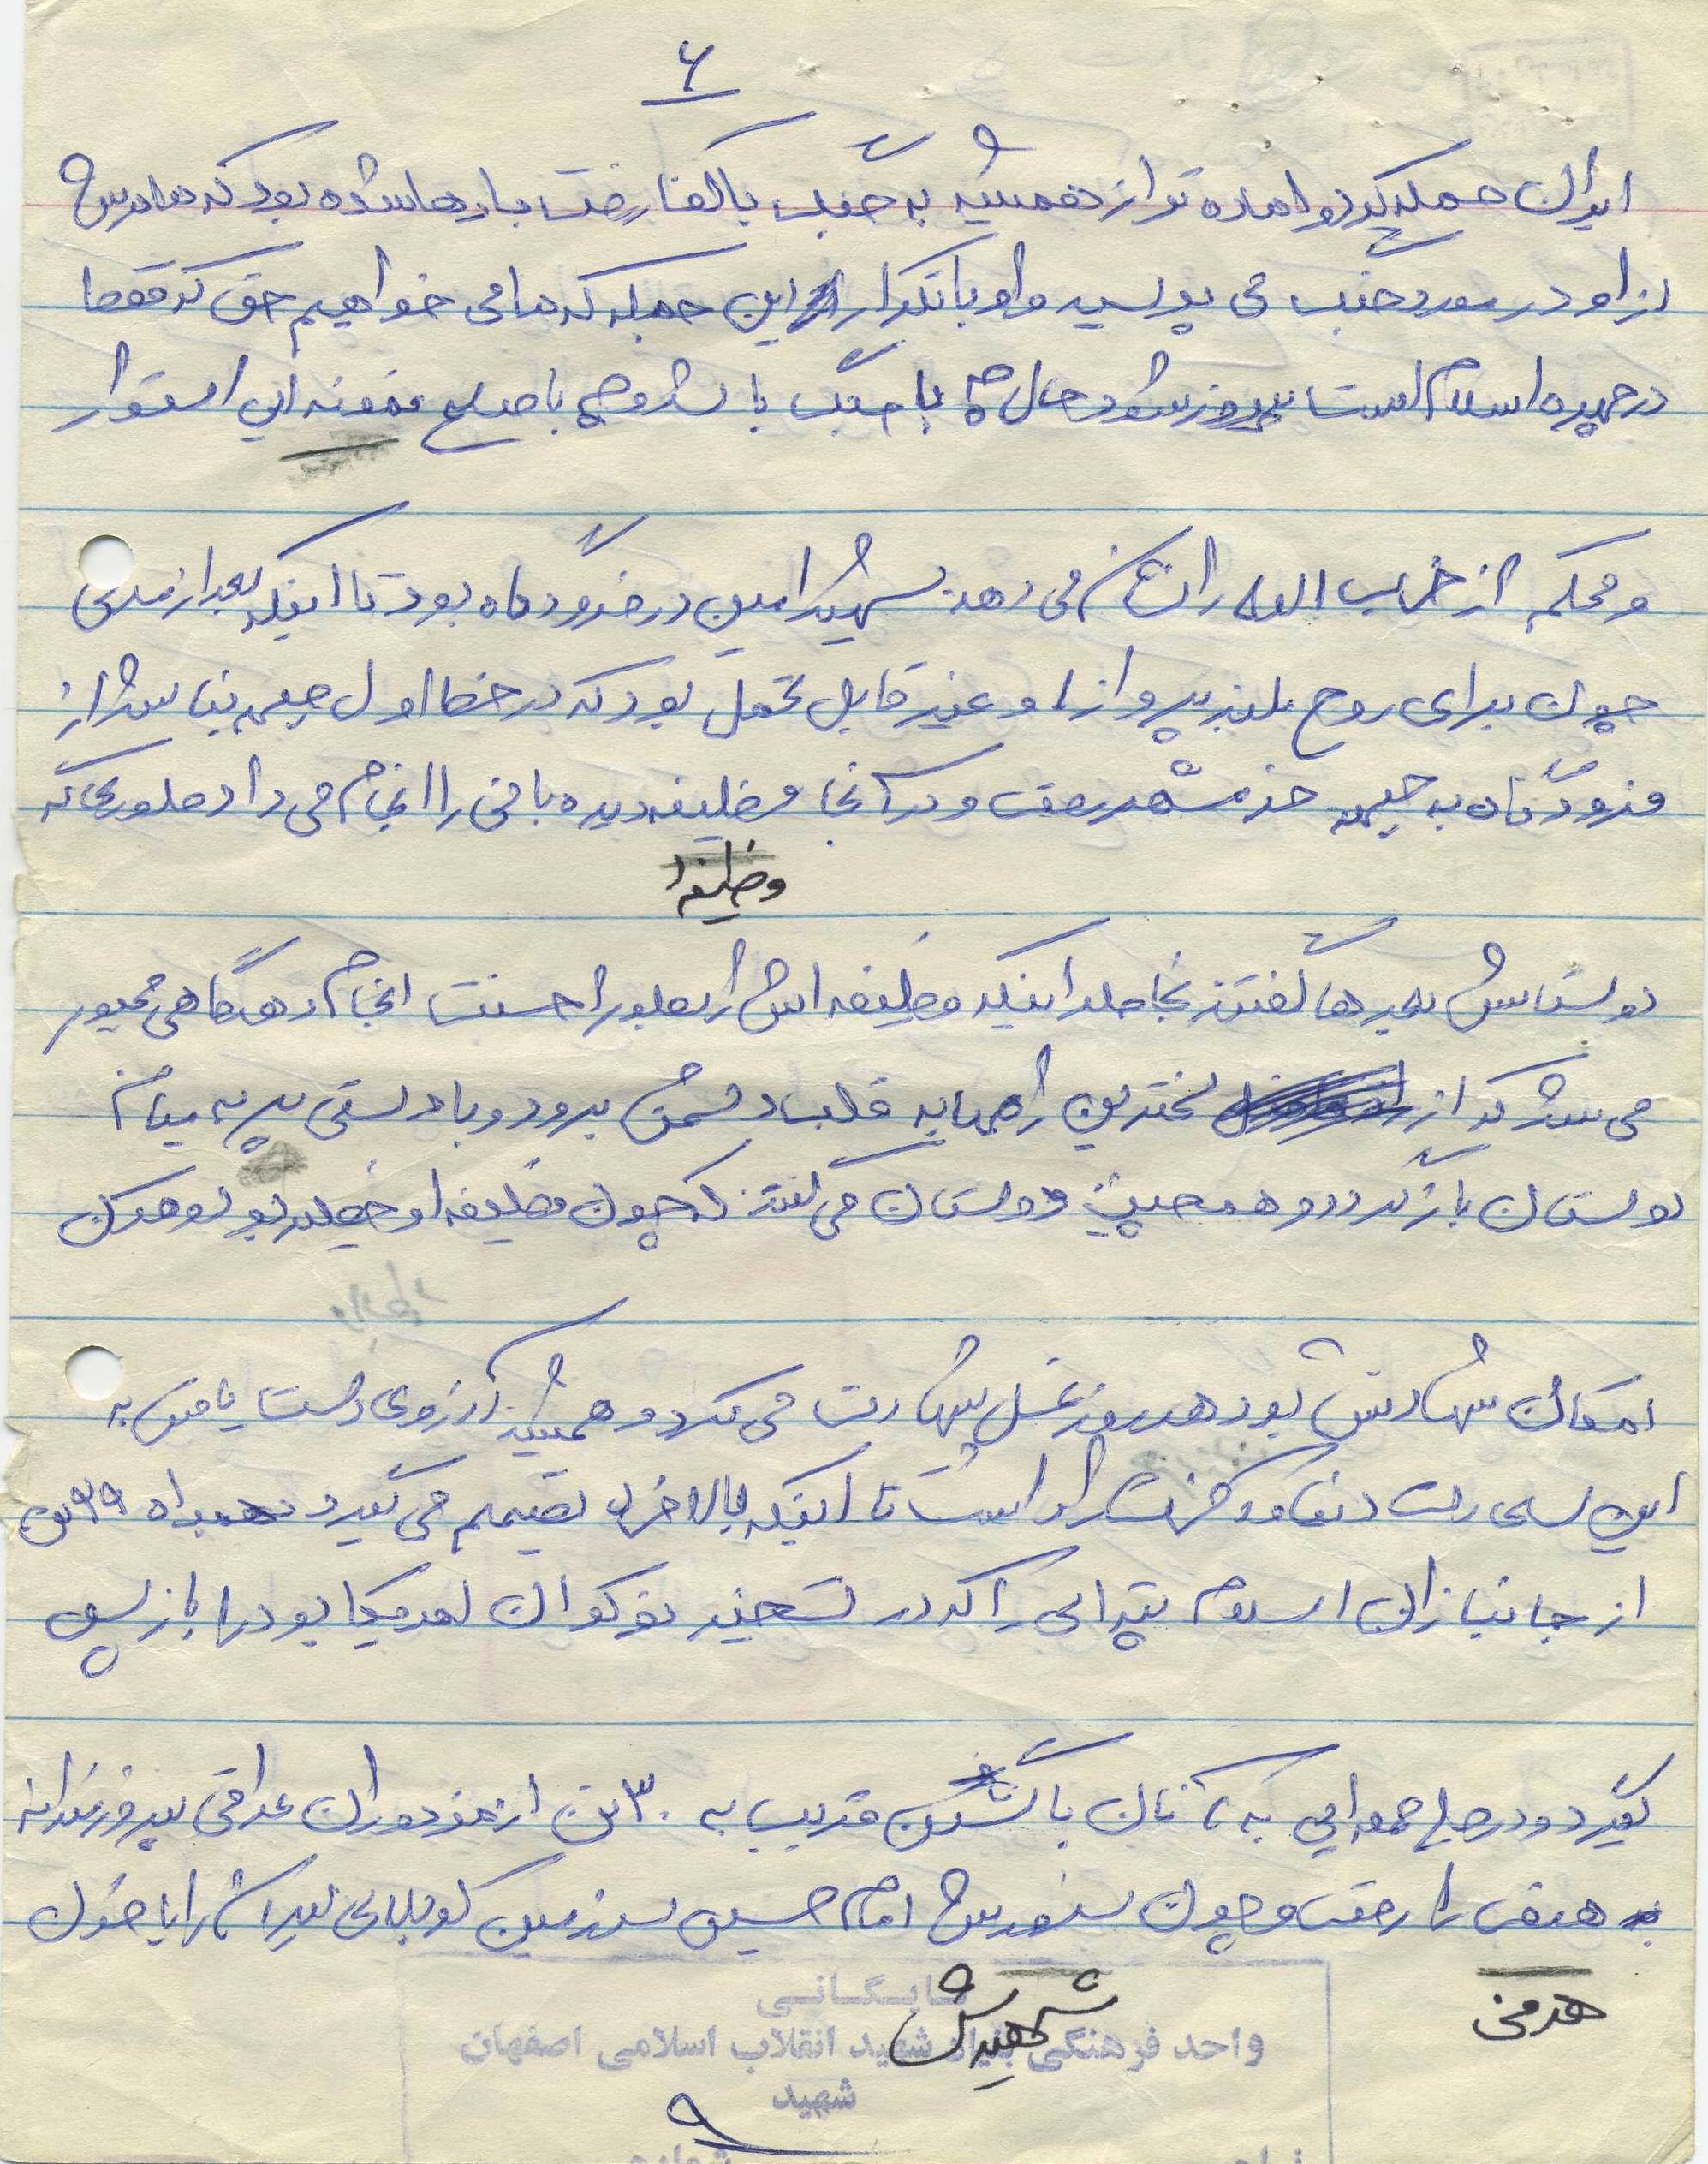 ۶
ایران حمله کرد و آماده تر از همیشه به جنگ با کفار رفت بارها شده بود که مادرش
از او در مورد جنگ می پرسید و او با تکرار این جمله که ما می خواهیم حق که فقط
در چهره اسلام است پیروز شود حال چه با جنگ باشد و چه با صلح نمونه ایی استوار
و محکم از حزب الله را نشان می دهد. شهید امین در فرودگاه بود تا اینکه بعد از مدتی
چون برای روح بلند پرواز او غیر قابل تحمل بود که در خط اول جبهه نباشد از
فرودگاه به جبهه خرمشهر رفت و در آنجا وظیفه دیده بانی را انجام می داد طوری که
وظیفه
دوستانش بعدها گفتند بخاطر اینکه وظیفه اش را بطور احسنت انجام دهد گاهی مجبور
می شد که از نزدیکترین راهها به قلب دشمن برود و با دستی پر به میان
دوستان باز گردد و همچنین دوستان می گفتند که چون وظیفه او خطیر بود و هر آن
امکان شهادتش بود هر روز غسل شهادت می کرد و همیشه آرزوی دست یافتن به
این سعادت دنیا و آخرت را داشت تا اینکه بالاخره تصمیم می گیرد همراه ۹۹ تن
از جانبازان اسلام تپه ایی را که در تسخیر نوکران امریکا بود را باز پس
گیرد و در صبح جمعه ایی به آنان با کشتن قریب به ۳۰ تن از مزدوران عراقی پیروزمندانه
به هدف را رفت و چون سرورش امام حسین سرزمین کربلای ایران را با خون
هدفی
شهیدش
بایگانی
واحد فرهنگی بنیاد شهید انقلاب اسلامی اصفهان
شهید